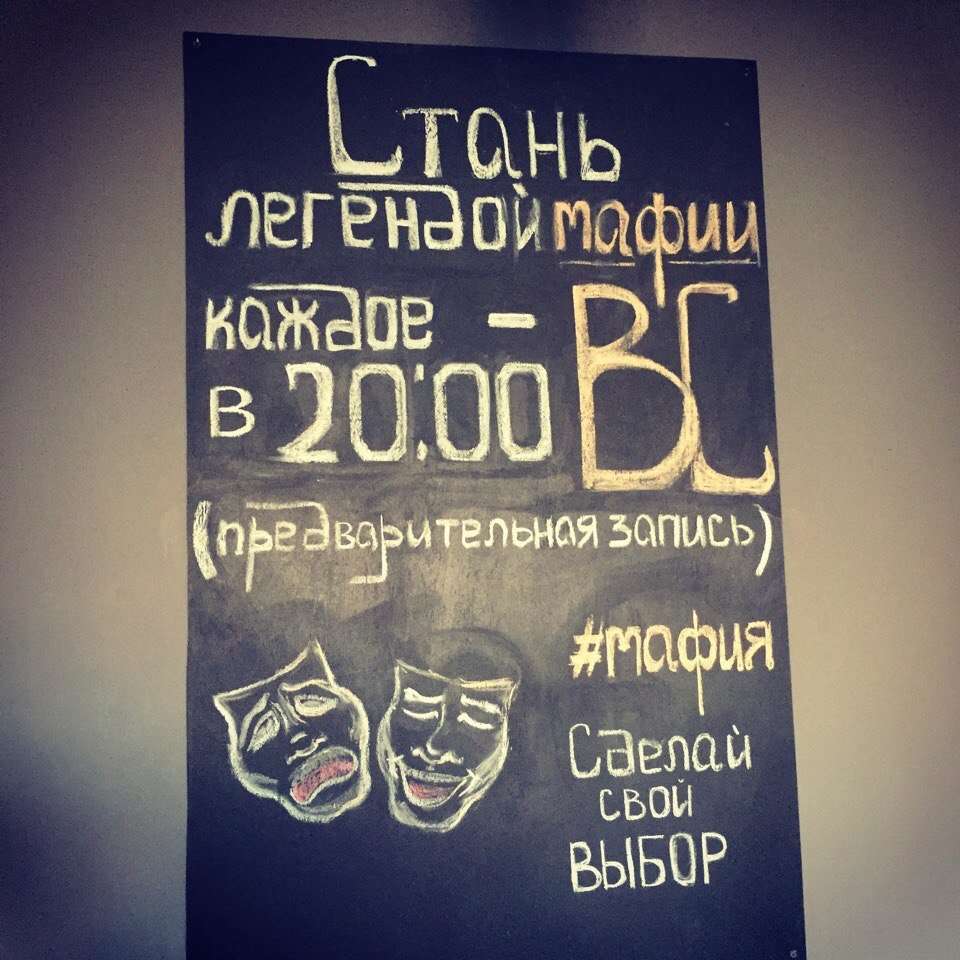 Стань
легендой мафии
каждое - ВС
в 20:00
(предварительная запись)
#мафия
Сделай
свой
ВЫБОР